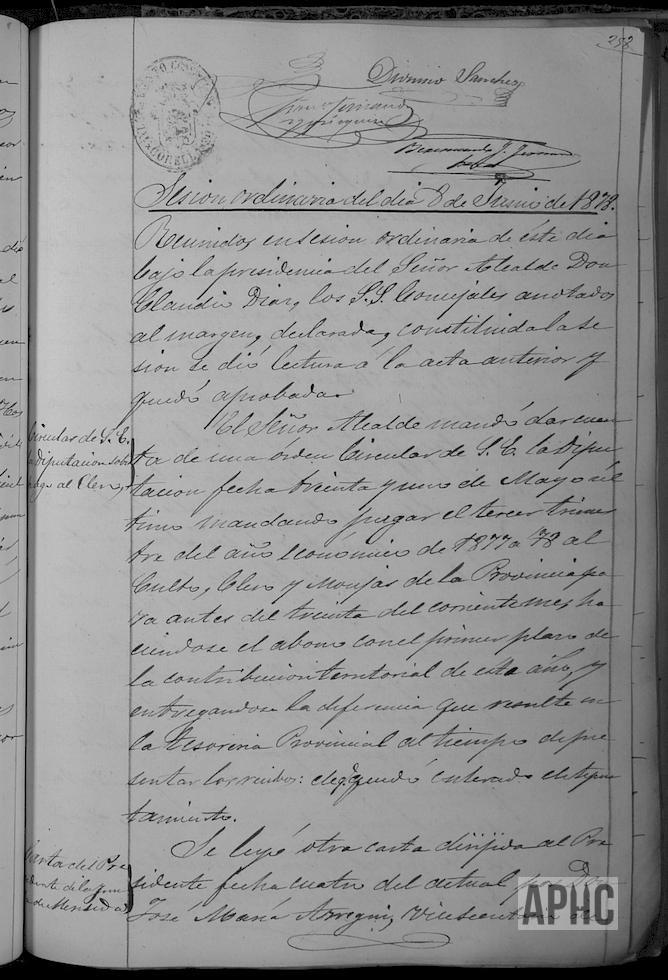 258
Dionisio Sanchez
Sesion ordinaria del dia 8 de Junio de 1878.
Reunidos en sesion ordinaria de éste dia
bajo la presidencia del Señor Alcalde Don
Claudio Diaz, los S.S. Concejales anotados
al margen, declarada, constituida la se
sion se dió lectura á la acta anterior y
quedó aprobada.
Circular de S. E.
la Diputacion sobre
pago al Clero,
El Señor Alcalde mandó dar cuen
ta de una órden Circular de S. E. la Dipu
tacion fecha treinta y uno de Mayo úl
timo mandando pagar el tercer trimes
tre del año económico de 1877 a 78 al
Culto, Clero y Monjas de la Provincia pa
ra antes del treinta del corriente mes, ha
ciendose el abono con el primer plazo de
la contribucion territorial de este año, y
entregandose la diferencia que resulte en
la tesoreria Provincial al tiempo de pre
sentar los recibos: de q.e quedó enterado el Ayun
tamiento.
Carta del Pre
sidente de la Jun
ta de
Se leyó otra carta dirijida al Pre
sidente fecha cuatro del actual por Don
José María Arregui, Vicesecretario de
APHC